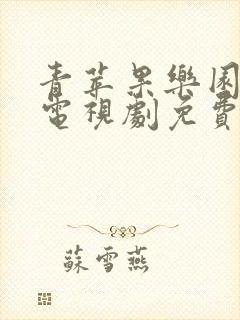 青苹果樂園
電視劇免費
蘇雪燕